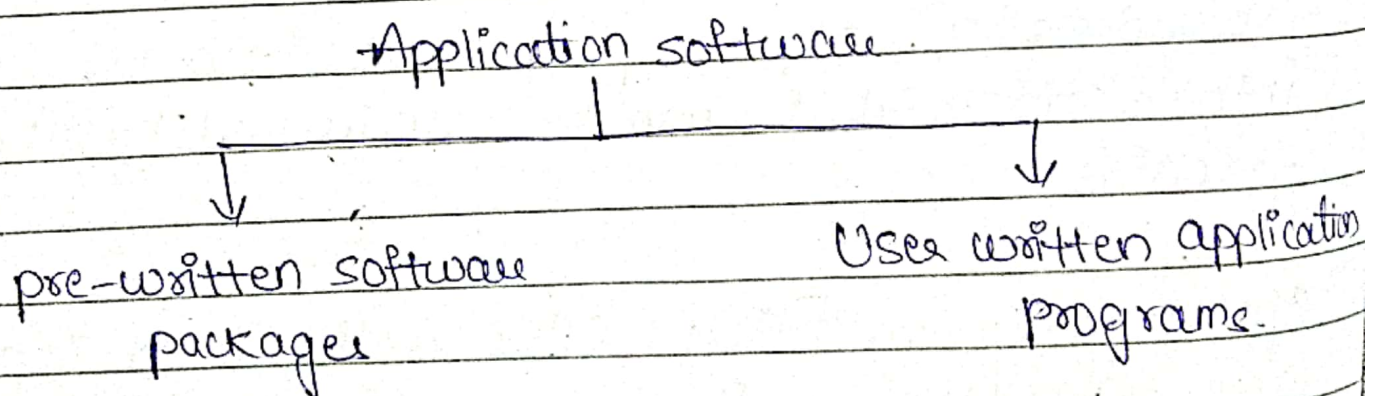 Application software
pre-written software
packages
User written application
programs.